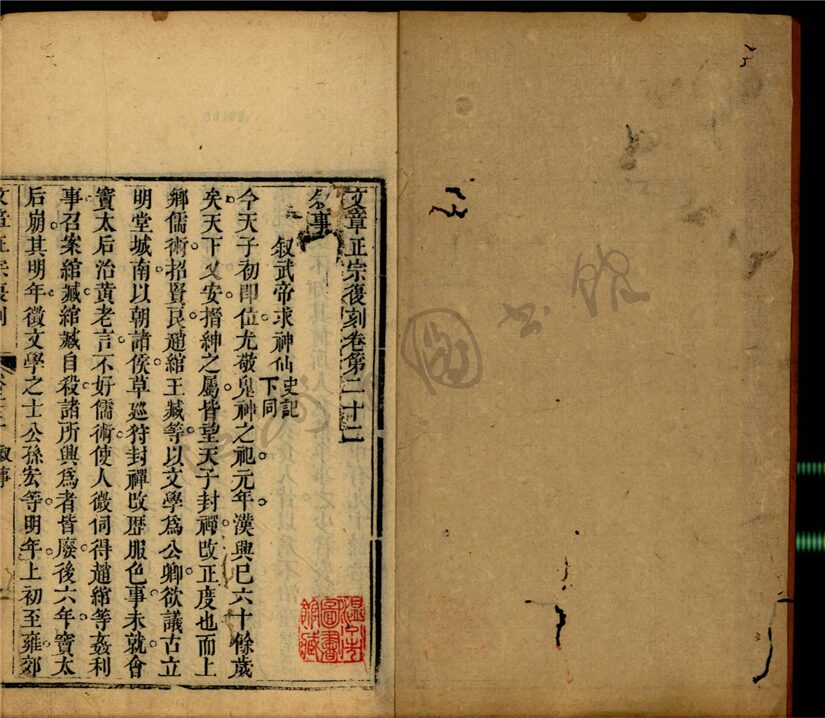 文章正宗復刻卷第二十二
叙事
叙武帝求神仙史記下同
今天子初即位尤敬鬼神之祀元年漢興已六十餘歲
矣天下乂安搢紳之屬皆望天子封禪改正度也而上
鄉儒術招賢良趙綰王臧等以文學爲公卿欲議古立
明堂城南以朝諸侯草廵狩封禪改歷服色事未就會
竇太后治黃老言不好儒術使人微伺得趙綰等姦利
事召案綰臧綰臧自殺諸所興爲者皆廢後六年竇太
后崩其明年徵文學之士公孫宏等明年上初至雍郊
文章正宗復刻
叙事
圖書館藏